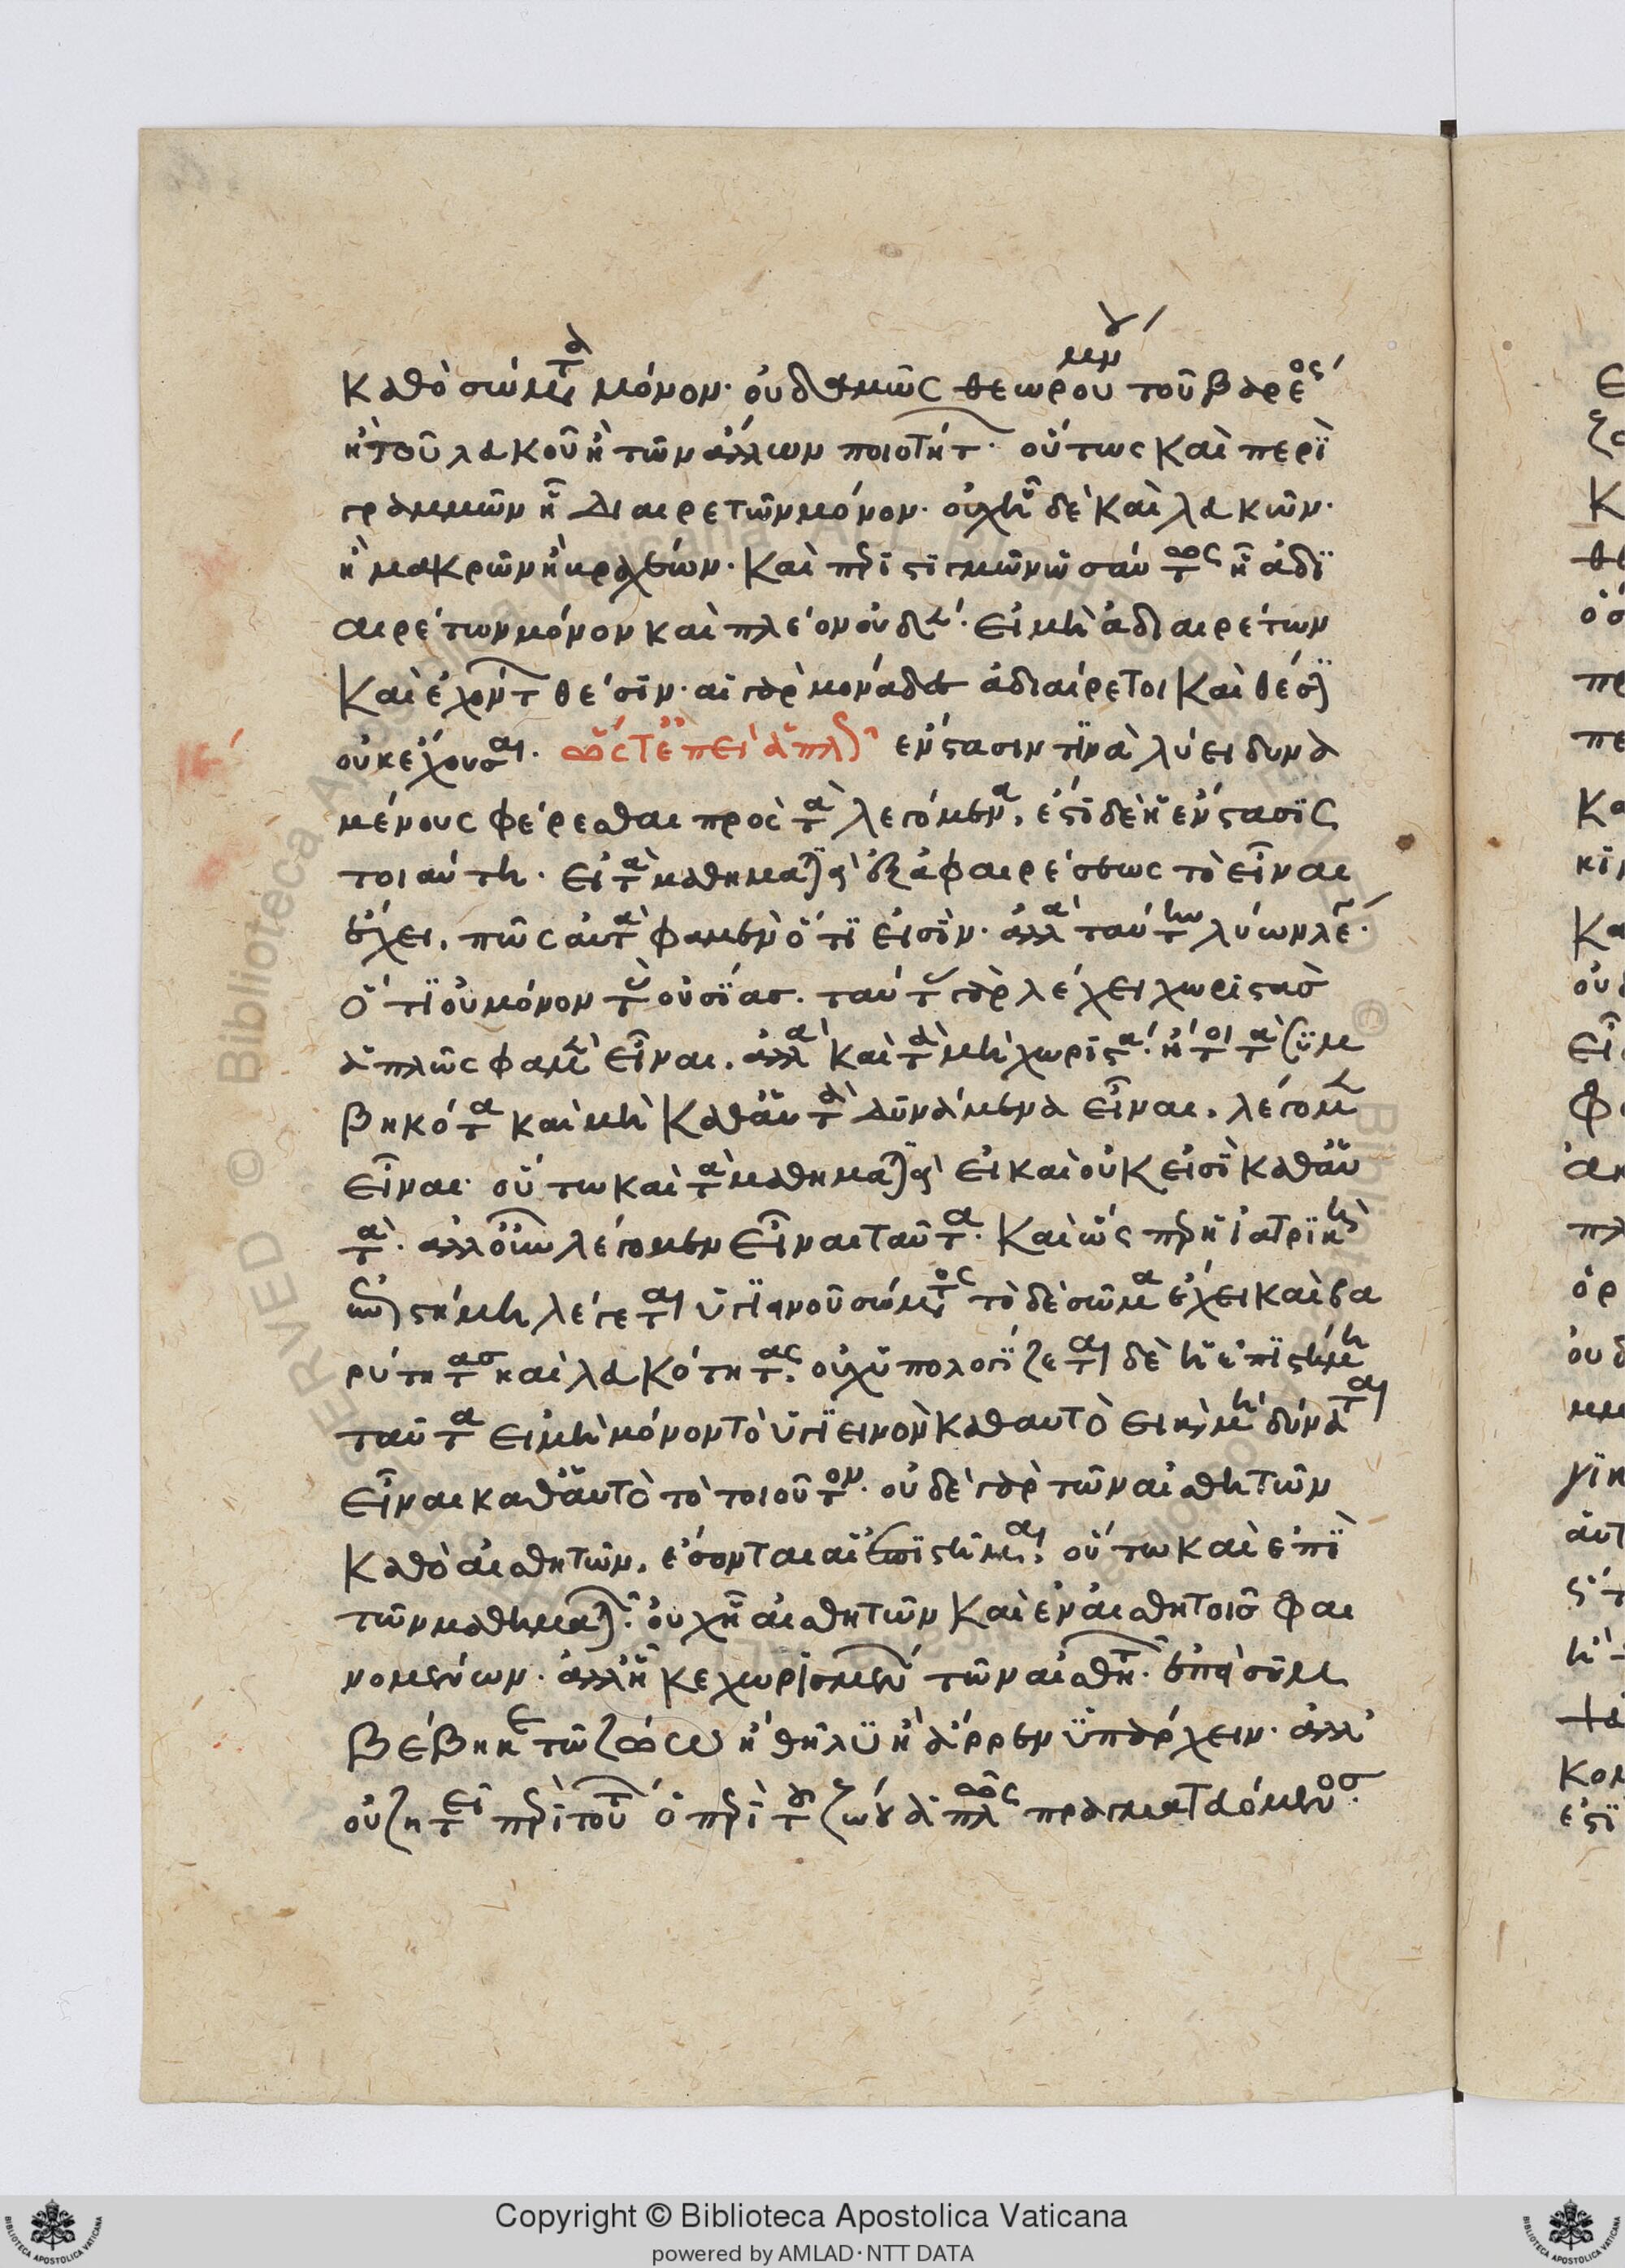 καθὸ σώματα μόνον· οὐδαμῶς θεωροῦμεν τοῦ βάρεος
ἢ τοῦ λευκοῦ ἢ τῶν ἄλλων ποιοτήτ· οὕτως καὶ περὶ
γραμμῶν ᾗ διαιρετῶν μόνον· οὐχὶ δὲ καὶ λευκῶν·
ἢ μακρῶν ἢ βραχέων· καὶ περὶ στιγμῶν ὡσαύτως ᾗ ἀδι
αιρέτων μόνον καὶ πλέον οὐδέν· εἰ μὴ ἀδιαιρέτων
καὶ ἐχόντ θέσιν· αἱ γὰρ μονάδες ἀδιαίρετοι καὶ θέσιν
οὐκ ἔχουσαι· ὥστ' ἐπεὶ ἁπλῶς ἔνστασιν τινὰ λύει δυνα
μένους φέρεσθαι πρὸς τὰ λεγόμενα, ἔστι δὲ ἡ ἔνστασις
τοιαύτη· εἰ τὰ μαθηματικὰ ἐξ ἀφαιρέσεως τὸ εἶναι
ἔχει, πῶς αὐτὰ φαμὲν ὅτι εἰσίν· ἀλλὰ ταύτην λύων λέγει·
ὅτι οὐ μόνον τὰς οὐσίας· ταύτας γὰρ λέγει χωριστὰς
ἁπλῶς φαμὲν εἶναι, ἀλλὰ καὶ τὰ μὴ χωριστά· ἤτοι τὰ συμ
βηκότα καὶ μὴ καθ' αὑτὰ δυνάμενα εἶναι, λέγομεν
εἶναι· οὕτω καὶ τὰ μαθηματικὰ εἰ καὶ οὐκ εἰσὶ καθ' αὑ
τά· ἀλλ' οὖν λέγομεν εἶναι ταῦτα· καὶ ὡς περ ἡ ἰατρικὴ
ἐπιστήμη λέγεται ὑγιεινοῦ σώματος τὸ δὲ σῶμα ἔχει καὶ βα
ρύτητας καὶ λευκότητας· οὐχ ὑπολογίζεται δὲ ἡ ἐπιστήμη
ταῦτα εἰ μὴ μόνον τὸ ὑγιεινὸν καθ' αυτὸ εἰ καὶ μὴ δύναται
εἶναι καθ' αὑτὸ τὸ τοιοῦτον· οὐδὲ γὰρ τῶν αἰσθητῶν
καθὸ αἰσθητῶν, ἔσονται αἱ ἐπιστῆμαι· οὕτω καὶ ἐπὶ
τῶν μαθηματικῶν· οὐχ ᾗ αἰσθητῶν καὶ ἐν αἰσθητοῖς φαι
νομένων· ἀλλ' ᾗ κεχωρισμένων τῶν αἰσθητ· ἐπεὶ συμ
βέβηκε τῷ ζώω ἢ θῆλυ ἢ ἄρρεν ὑπάρχειν· ἀλλ'
οὐ ζητεῖ περὶ τούτου ὁ περὶ τοῦ ζώου ἁπλῶς πραγματευόμενος·